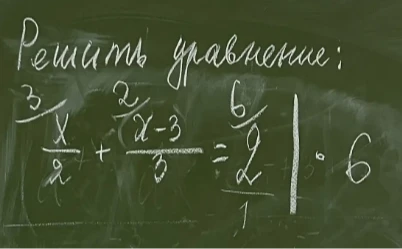 Решить уравнение:
3/ x/2 + 2/ (x-3)/3 = 6/ 2/1 | · 6